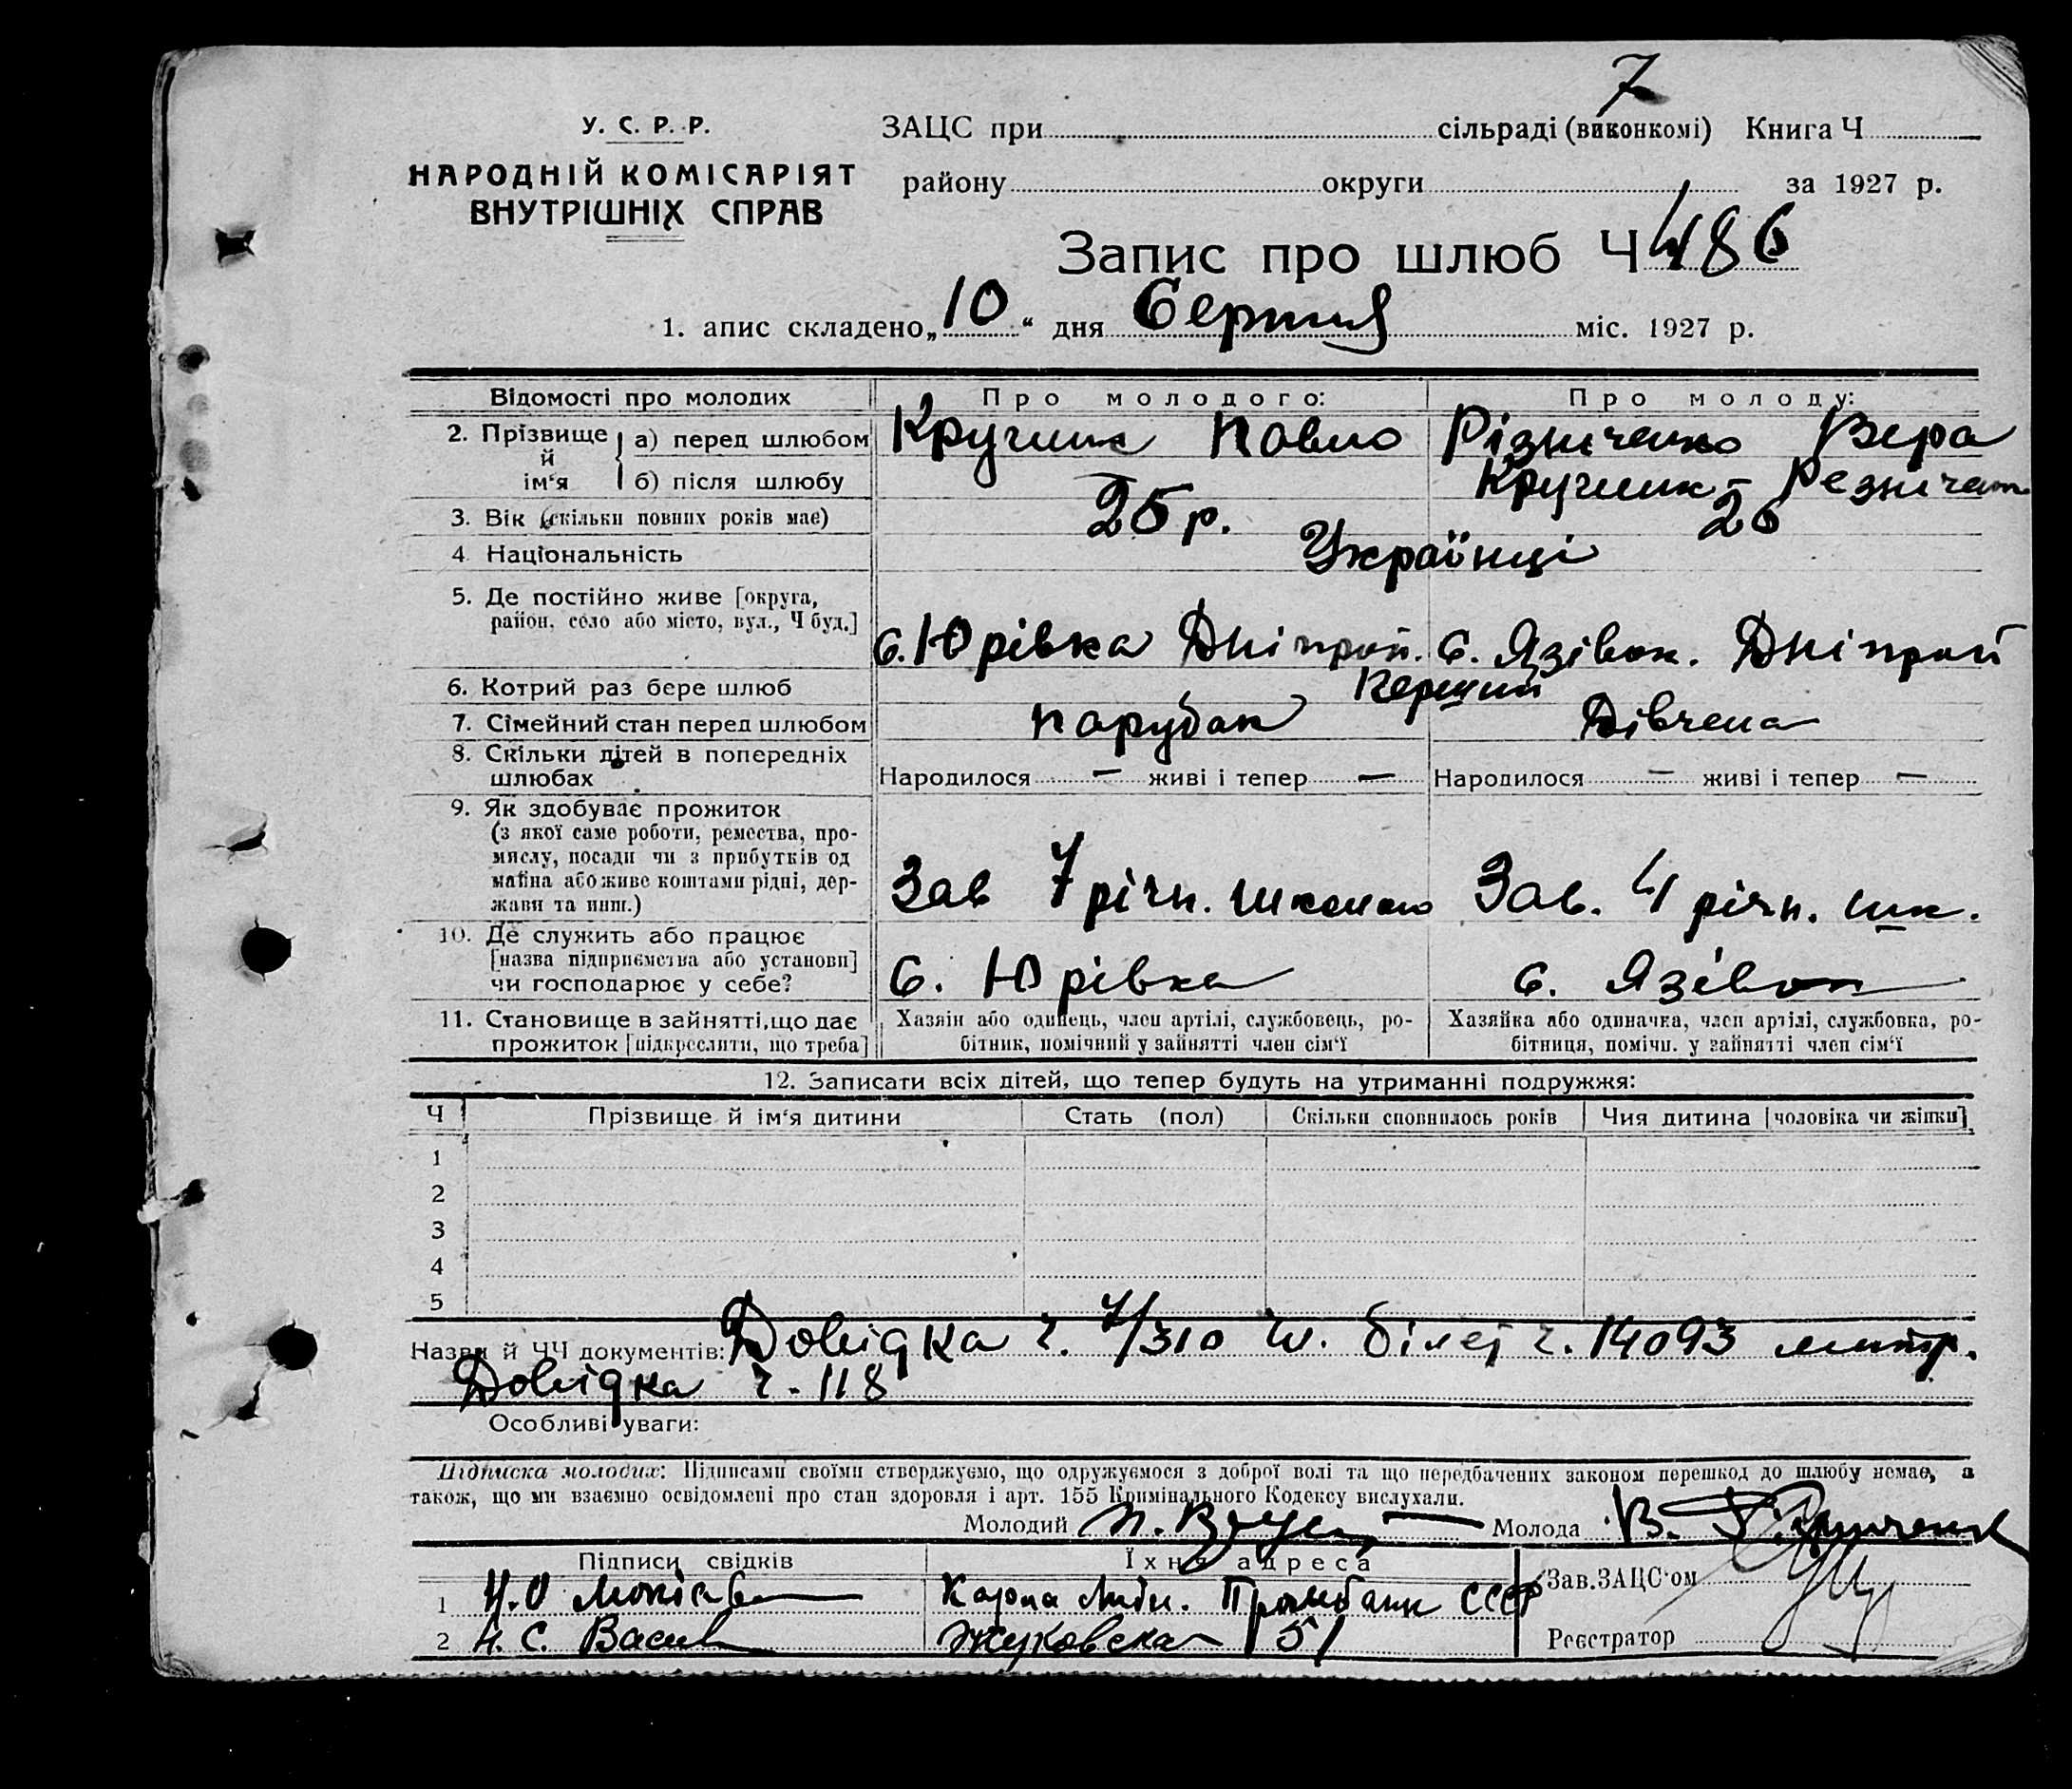 7
У. С. Р. Р.
НАРОДНІЙ КОМІСАРІЯТ
ВНУТРІШНІХ СПРАВ
ЗАЦС при сільраді (виконкомі) Книга Ч
району округи за 1927 р.
Запис про шлюб Ч 486
1. апис складено „10“ дня Серпня міс. 1927 р.
Відомості про молодих Про молодого: Про молоду:
2. Прізвище й ім‘я а) перед шлюбом Кручник Павло Різніченко Вера
б) після шлюбу Кручник - Резничен
3. Вік (скільки повних років має) 25 р. 26
4 Національність Українці
5. Де постійно живе [округа,
район, село або місто, вул., Ч буд.]
с. Юрівка Дніпроп. с. Язівок. Дніпроп
6. Котрий раз бере шлюб Перший
7. Сімейний стан перед шлюбом парубок Дівчена
8. Скільки дітей в попередніх
шлюбах Народилося — живі і тепер — Народилося — живі і тепер —
9. Як здобуває прожиток
(з якої саме роботи, ремества, про-
мислу, посади чи з прибутків од
майна або живе коштами рідні, дер-
жави та инш.)
Зав 7 річн. школою Зав. 4 річн. шк.
10. Де служить або працює
[назва підприємства або установи]
чи господарює у себе?
с. Юрівка с. Язівок
11. Становище в зайнятті, що дає
прожиток [підкреслити, що треба]
Хазяін або одинець, член артілі, службовець, ро-
бітник, помічний у зайнятті член сім‘ї
Хазяйка або одиначка, член артілі, службовка, ро-
бітниця, помічн. у зайнятті член сім‘ї
12. Записати всіх дітей, що тепер будуть на утриманні подружжя:
Ч Прізвище й ім‘я дитини Стать (пол) Скільки сповнилось років Чия дитина [чоловіка чи жінки]
1
2
3
4
5
Назви й ЧЧ документів: Довідка ч. 7/310 ч. білет ч. 14093
Довідка ч. 118
Особливі уваги:
Підписка молодих: Підписами своїми стверджуємо, що одружуємося з доброї волі та що передбачених законом перешкод до шлюбу немає, а
також, що ми взаємно освідомлені про стан здоровля і арт. 155 Кримінального Кодексу вислухали.
Молодий Молода
Підписи свідків Їхня адреса
1 Карла Лібк. Промбанк СССР
2 Н. С. Жуковская 51
Зав. ЗАЦС‘ом
Реєстратор